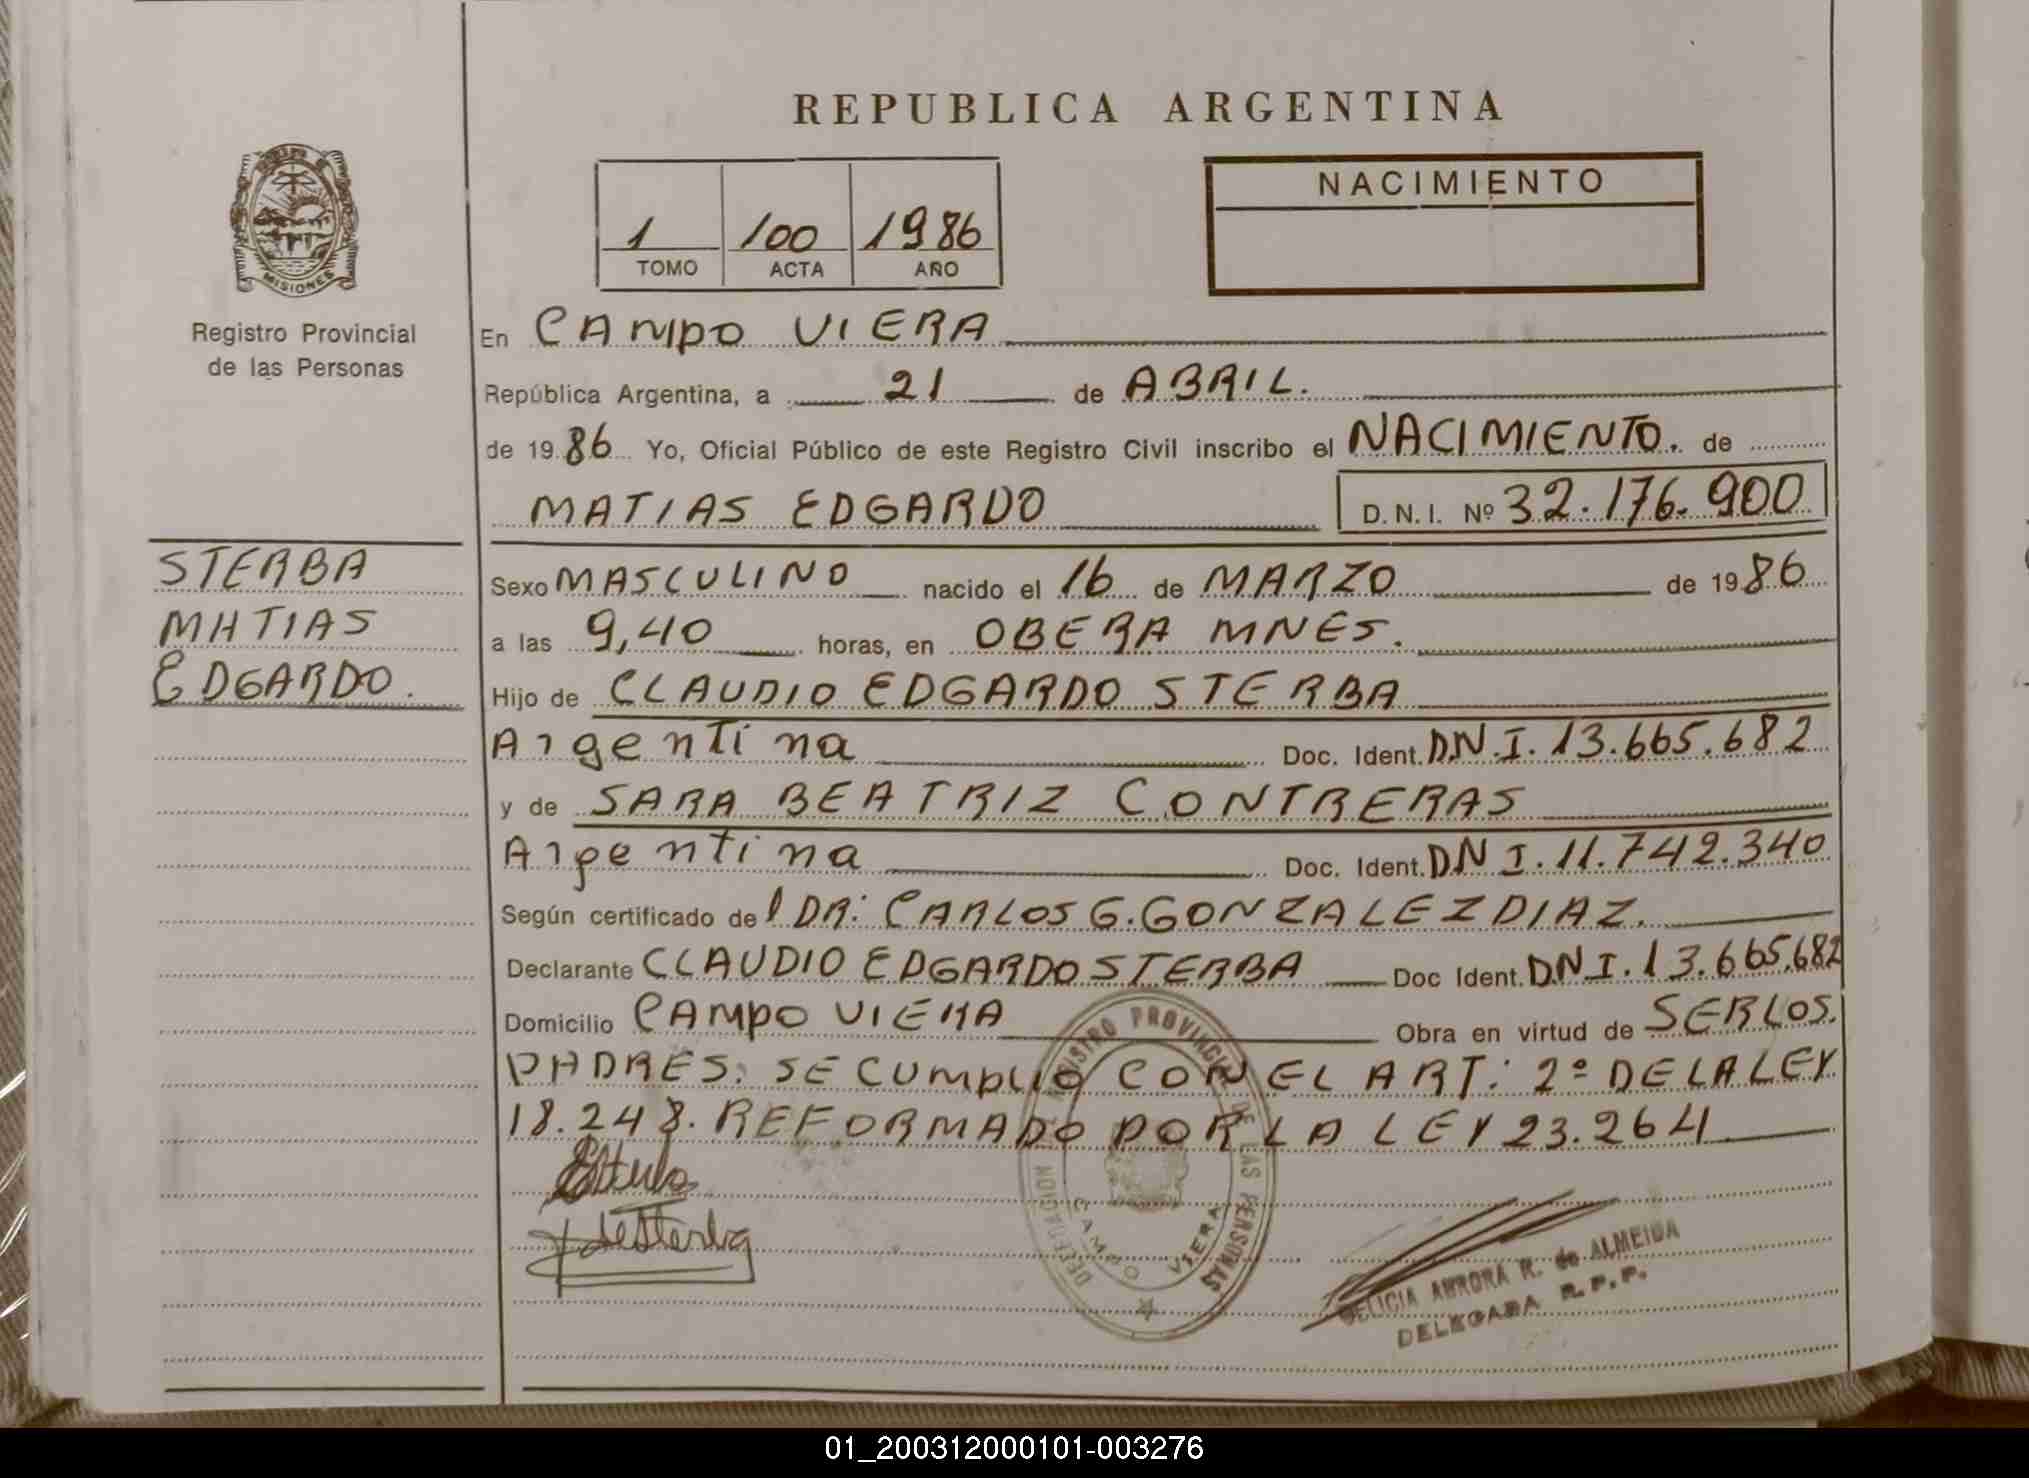 REPUBLICA ARGENTINA
MISIONES
Registro Provincial
de las Personas
1 100 1986
TOMO ACTA AÑO
NACIMIENTO
En CAMPO VIERA
República Argentina, a 21 de ABRIL.
de 1986 Yo, Oficial Público de este Registro Civil inscribo el NACIMIENTO. de
MATIAS EDGARDO D.N.I. Nº 32.176.900
STERBA
MATIAS
EDGARDO.
Sexo MASCULINO nacido el 16 de MARZO de 1986
a las 9,40 horas, en OBERA MNES.
Hijo de CLAUDIO EDGARDO STERBA
Argentina Doc. Ident. D.N.I. 13.665.682
y de SARA BEATRIZ CONTRERAS
Argentina Doc. Ident. DNI. 11.742.340
Según certificado de l DR: CARLOS G. GONZALEZ DIAZ.
Declarante CLAUDIO EDGARDO STERBA Doc Ident. DNI. 13.665.682
Domicilio CAMPO VIERA Obra en virtud de SER LOS.
PADRES: SE CUMPLIO CON EL ART: 2º DE LA LEY
18.248. REFORMADO POR LA LEY 23.264
REGISTRO PROVINCIAL DE LAS PERSONAS
DELEGACION
CAMPO VIERA
de Sterba
DELICIA AURORA R. de ALMEIDA
DELEGADA R.P.P.
01_200312000101-003276